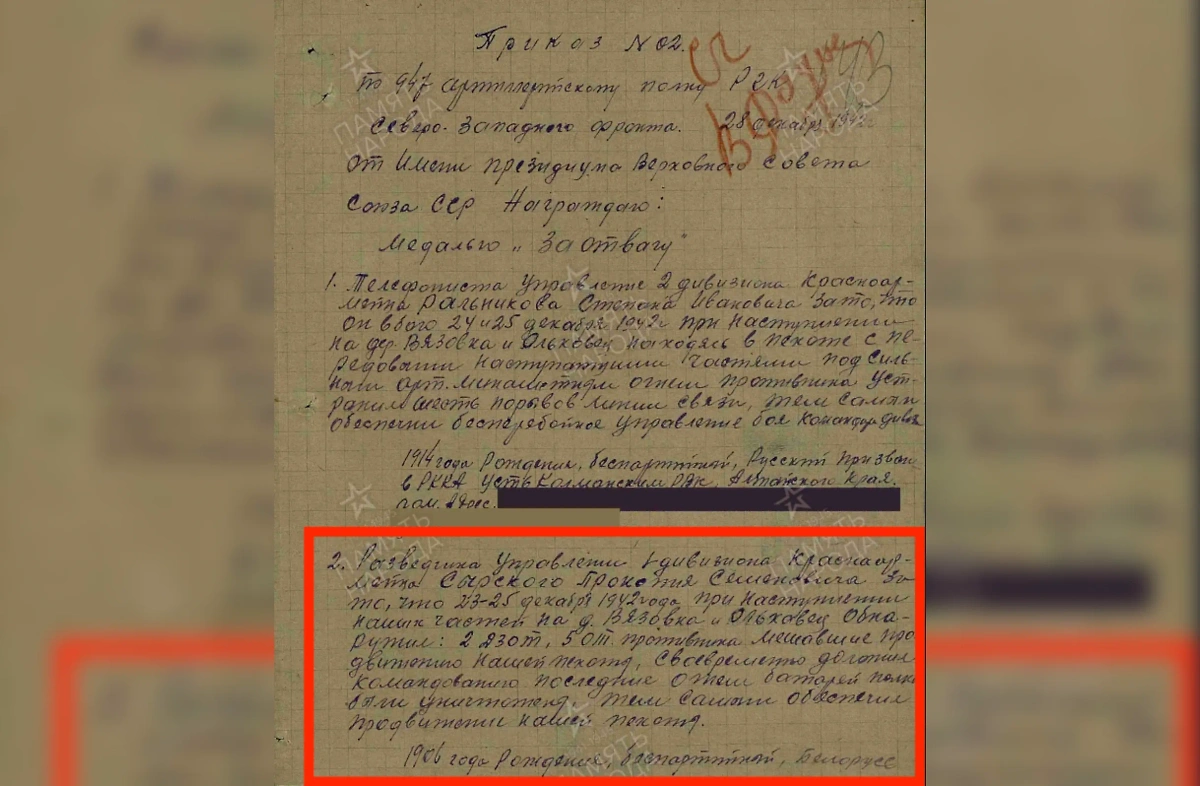 Приказ №02.
По 947 артиллерийскому полку РГК
Северо-Западного фронта. 28 декабря 1942г
От Имени президиума Верховного Совета
Союза ССР Награждаю:
Медалью „За Отвагу"
1. Телефониста Управление 2 дивизиона Красноар-
мейца Ральникова Степана Ивановича За то, что
он в бою 24 и 25 декабря 1942г при Наступлении
на дер. Вязовка и Ольховец находясь в пехоте с пе-
редовыми Наступающими частями под Силь-
ным арт. минометным огнем противника Уст-
ранил шесть порывов линии связи, тем самым
обеспечил бесперебойное Управление боя Командира
1914 года Рождения, беспартийный, Русский призван
в РККА Усть Колманским РВК, Алтайского Края.
Дом. Адрес.
2. Разведчика Управлении 1 дивизиона Красноар-
мейца Сырского Прокопия Семеновича За
то, что 23-25 декабря 1942 года при Наступлении
наших частей на д. Вязовка и Ольховец Обна-
ружил: 2 ДЗОТ, 5 ОТ. противника мешавшие про
движению нашей пехоты, Своевременно доложил
командованию последние Огнем батарей полка
были уничтожены, тем самым обеспечил
продвижение нашей пехоты.
1906 года Рождение, беспартийный, Белорусс
ПАМЯТЬ
НАРОДА